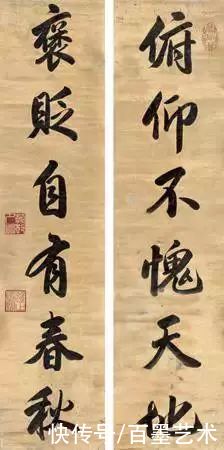 俯仰不愧天地
褒贬自有春秋
快传号/百墨艺术